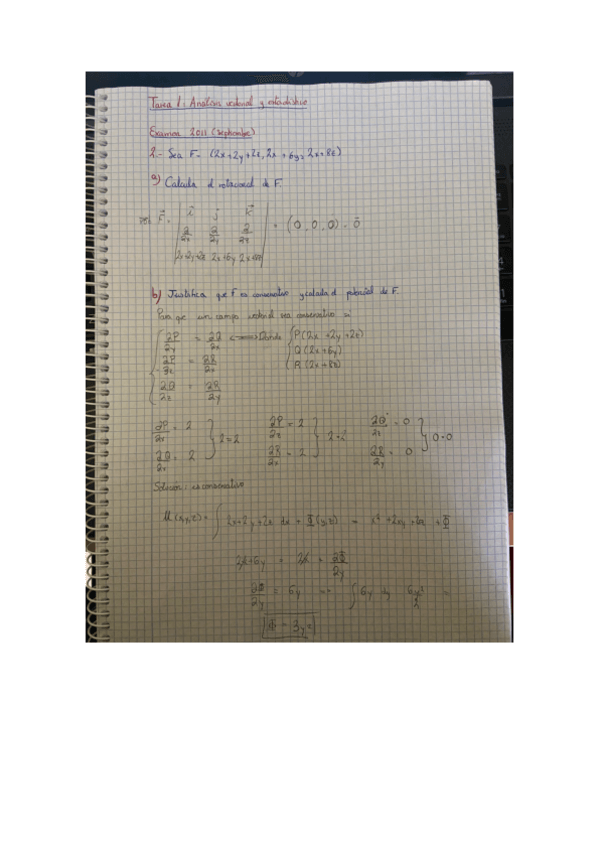 Tarea 1: Análisis vectorial y estadístico
Examen 2011 (septiembre)
2.- Sea F = (2x+2y+2z, 2x + 6y, 2x+8z)
a) Calcula el rotacional de F.
F⃗ = | i⃗ j⃗ k⃗ | = (0, 0, 0) = 0⃗
∂/∂x ∂/∂y ∂/∂z
2x+2y+2z 2x+6y 2x+8z
b) Justifica que F es conservativo y calcula el potencial de F.
Para que un campo vectorial sea conservativo
∂P/∂y = ∂Q/∂x Donde P(2x + 2y + 2z)
∂P/∂z = ∂R/∂x Q(2x+6y)
∂Q/∂z = ∂R/∂y R(2x+8z)
= 2 } 2=2 = 2 } 2=2 = 0 } 0=0
∂Q/∂x = 2 ∂R/∂x = 2 ∂R/∂y = 0
Solución: es conservativo
(x,y,z) = ∫ 2x+2y+2z dx + Φ(y,z) = x² + 2xy + 2zx + Φ
2x+6y = 2x + ∂Φ/∂y
∂Φ/∂y = 6y ∫ 6y dy 6y²/2 =